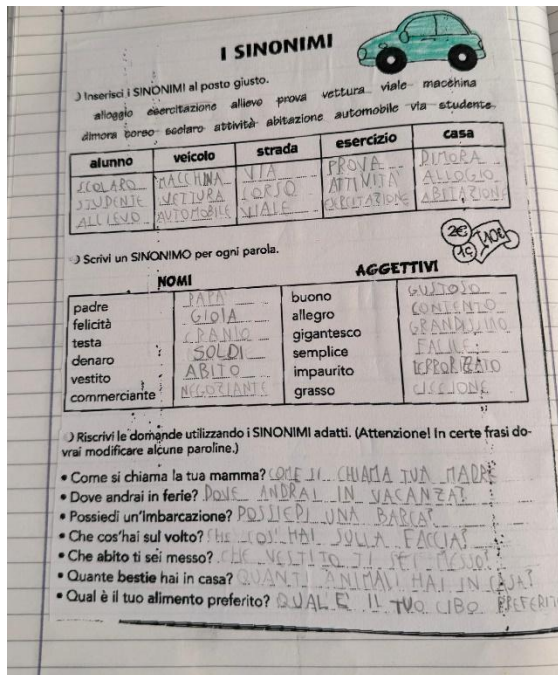 I SINONIMI
Inserisci i SINONIMI al posto giusto.
alloggio esercitazione allievo prova vettura viale macchina
dimora corso scolaro attività abitazione automobile via studente
alunno veicolo strada esercizio casa
SCOLARO MACCHINA VIA PROVA DIMORA
STUDENTE VETTURA CORSO ATTIVITÀ ALLOGIO
ALLIEVO AUTOMOBILE VIALE ABITAZIONE
2€ 10€
1€
Scrivi un SINONIMO per ogni parola.
NOMI AGGETTIVI
padre PAPÀ buono GUSTOSO
felicità GIOIA allegro CONTENTO
testa CRANIO gigantesco GRANDISSIMO
denaro SOLDI semplice FACILE
vestito ABITO impaurito TERRORIZZATO
commerciante NEGOZIANTE grasso CICCIONE
Riscrivi le domande utilizzando i SINONIMI adatti. (Attenzione! In certe frasi do-
vrai modificare alcune paroline.)
• Come si chiama la tua mamma? COME SI CHIAMA TUA MADRE
• Dove andrai in ferie? DOVE ANDRAI IN VACANZA?
• Possiedi un'imbarcazione? POSSIEDI UNA BARCA?
• Che cos'hai sul volto? CHE COS'HAI SULLA FACCIA?
• Che abito ti sei messo? CHE VESTITO TI SEI MESSO?
• Quante bestie hai in casa? QUANTI ANIMALI HAI IN CASA?
• Qual è il tuo alimento preferito? QUAL È IL TUO CIBO PREFERITO